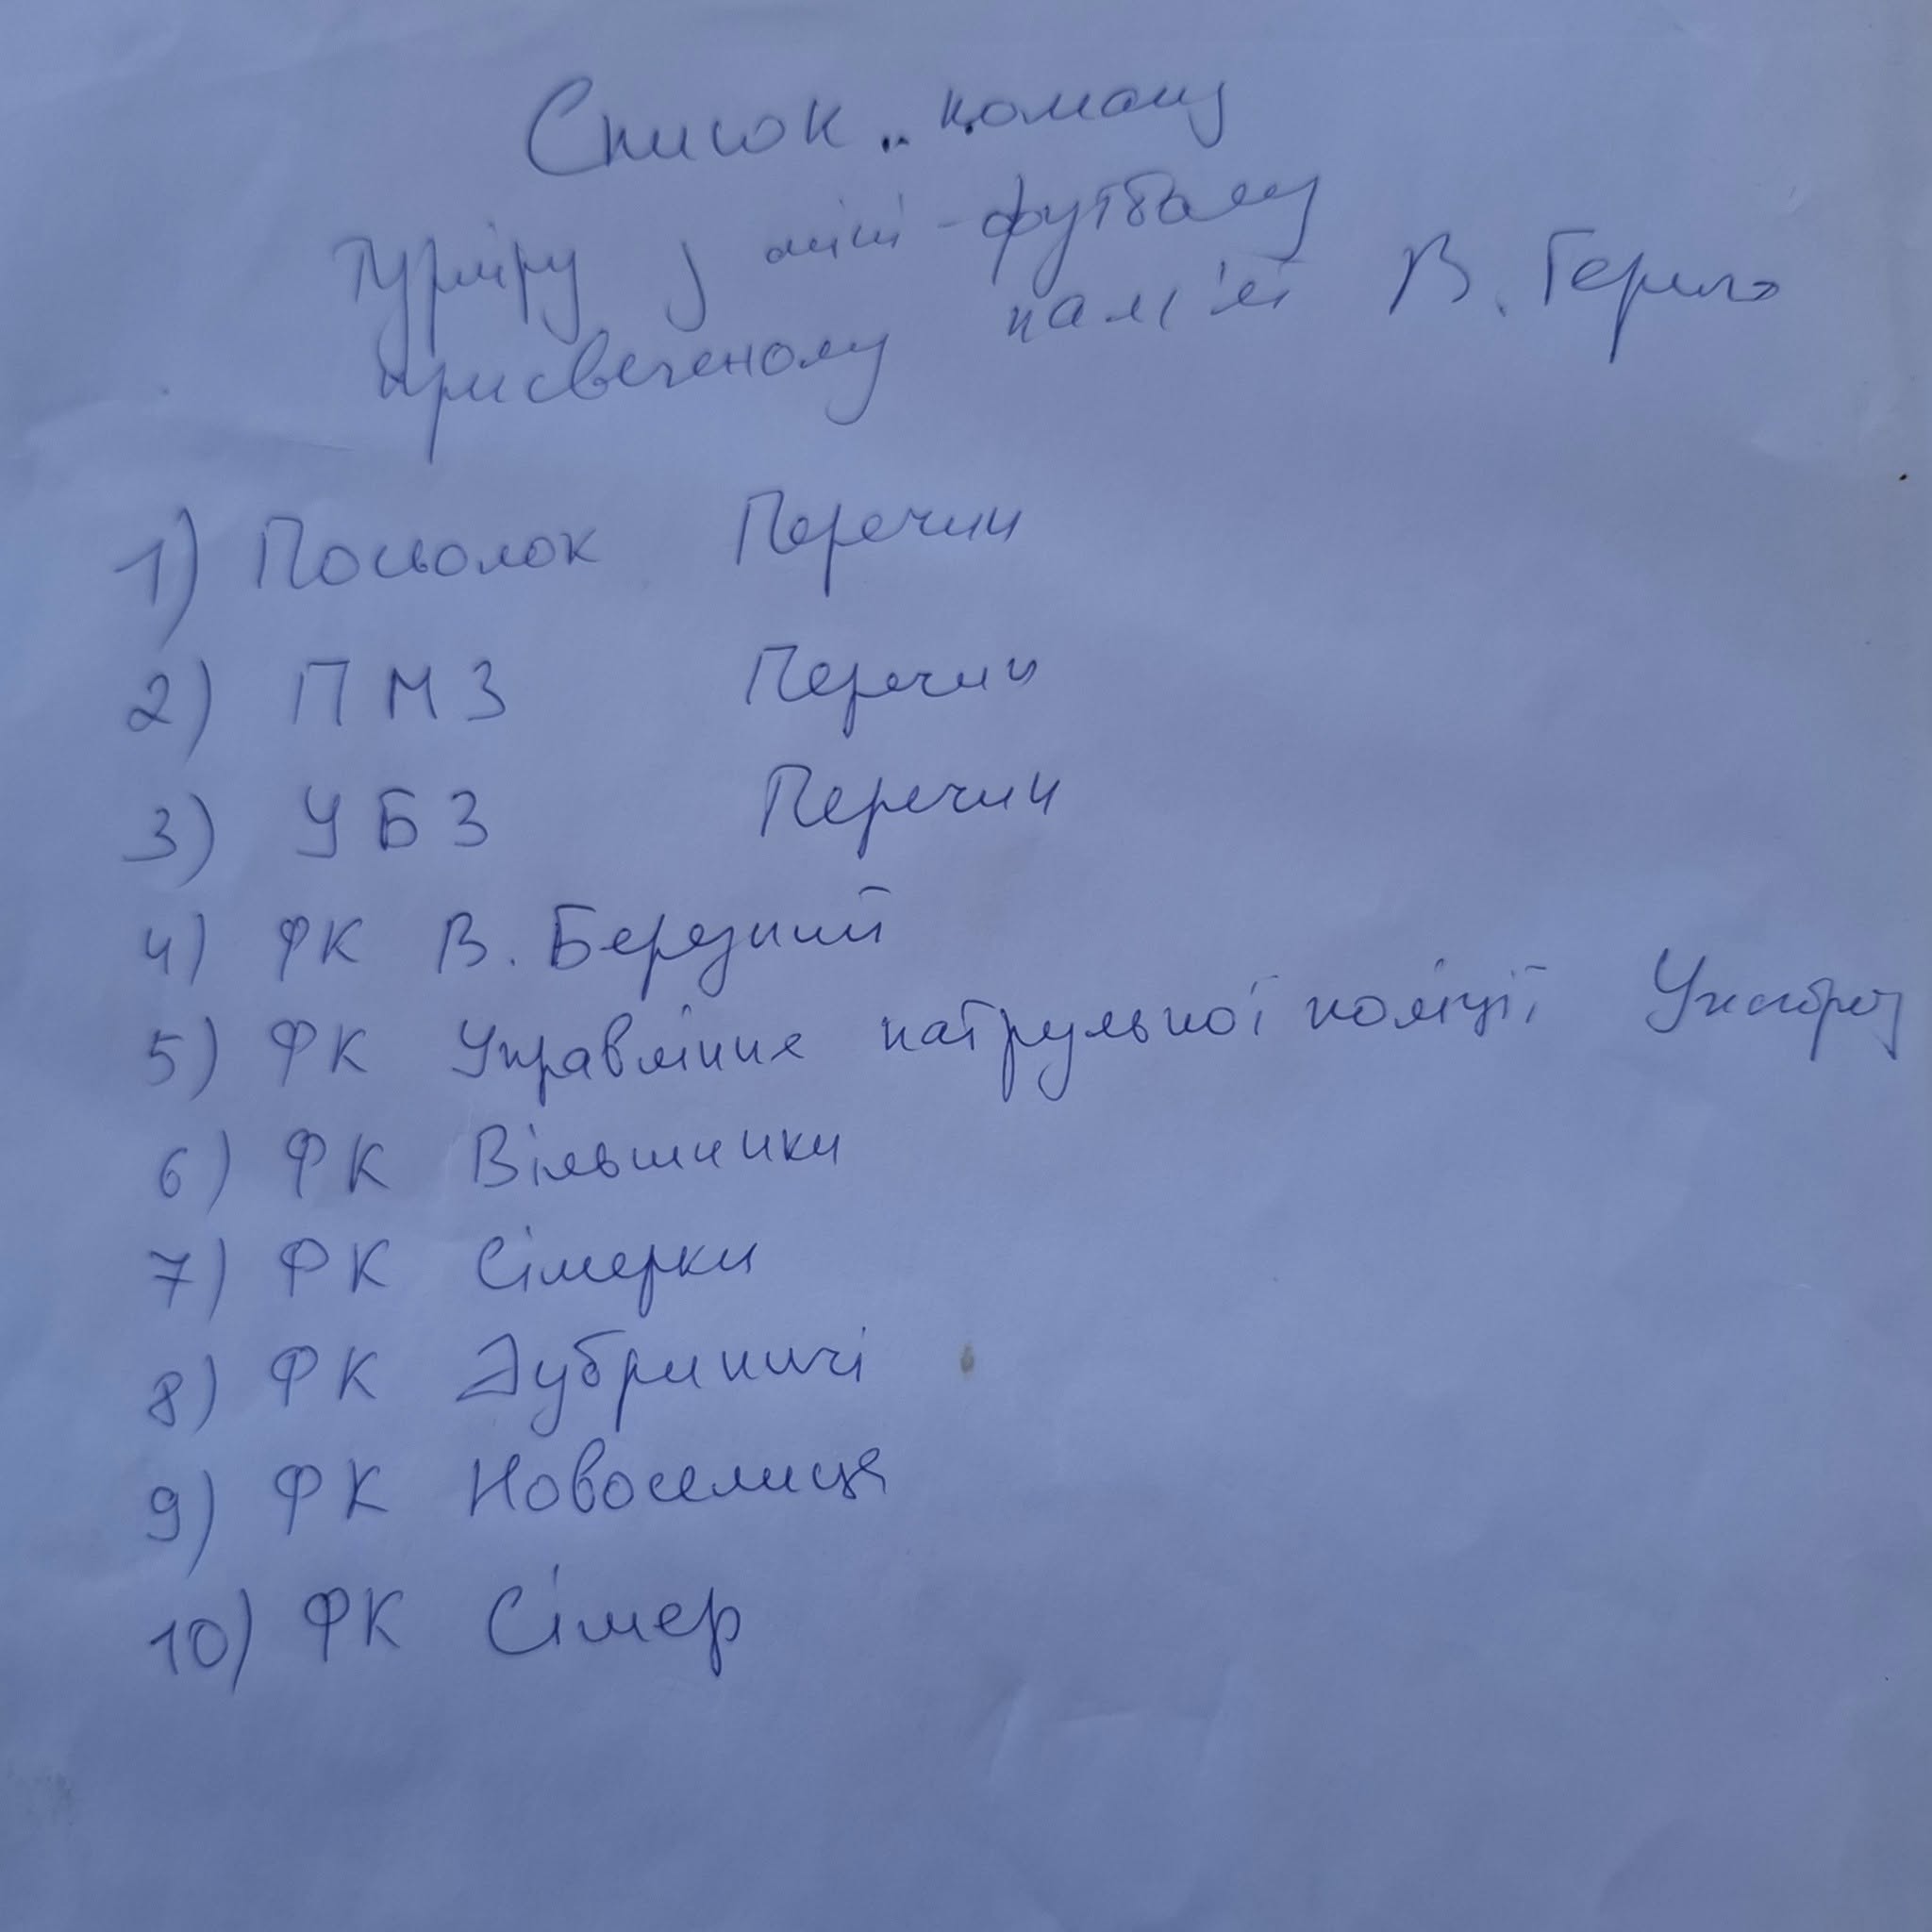 Список команд
Турніру з міні-футболу
присвеченому пам'яті В. Герило
1) Посьолок Перечин
2) ПМЗ Перечин
3) УБЗ Перечин
4) ФК В. Березний
5) ФК Управління патрульної поліції Ужгород
6) ФК Вільшинки
7) ФК Сімерки
8) ФК Дубриничі
9) ФК Новоселиця
10) ФК Сімер